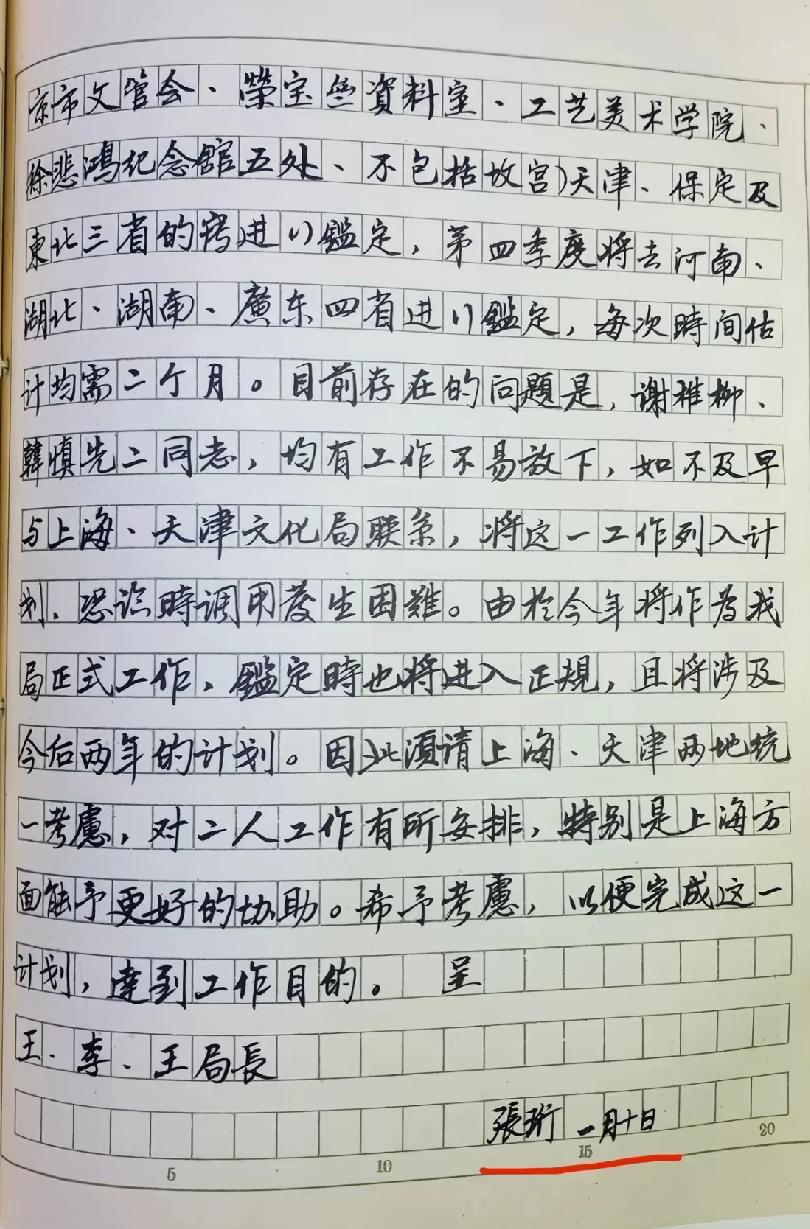 京市文管会、榮宝斋資料室、工艺美术学院、
徐悲鴻纪念館五处、不包括故宫)天津、保定及
東北三省的窍进行鑑定，第四季度将去河南、
湖北、湖南、廣东四省进行鑑定，每次時间估
计均需二个月。目前存在的问題是，谢稚柳、
韓慎先二同志，均有工作不易放下，如不及早
与上海、天津文化局联系，将这一工作列入计
划，恐临時调用發生困難。由於今年将作为我
局正式工作，鑑定時也将进入正規，且将涉及
今后两年的计划。因此須请上海、天津两地统
一考慮，对二人工作有所安排，特别是上海方
面能予更好的协助。希予考慮，以便完成这一
计划，達到工作目的。 呈
王、李、王局長
張珩 一月十日
5 10 15 20